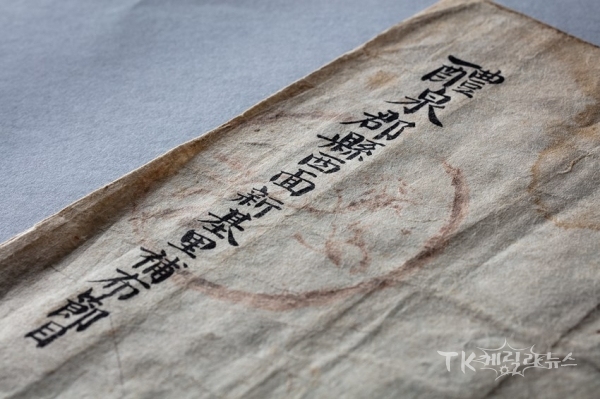 醴泉郡縣西面新基里補布節目
TK게릴라뉴스